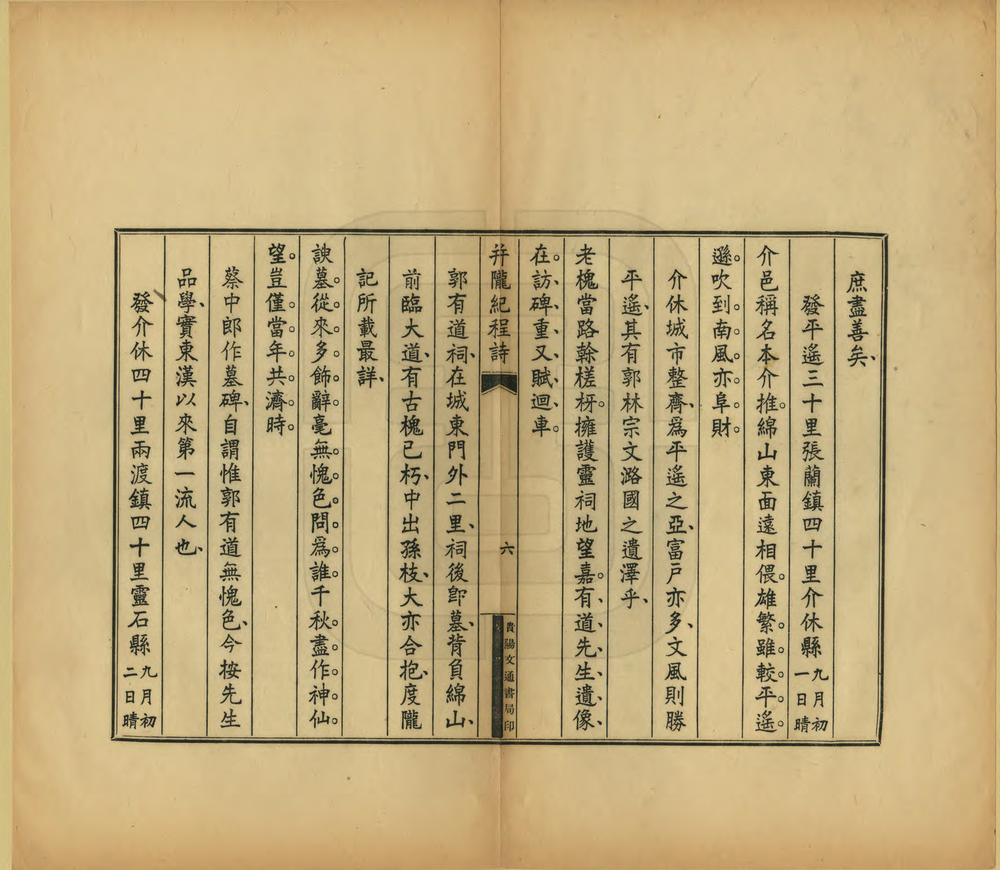 庶盡善矣、
發平遙三十里張蘭鎮四十里介休縣九月初一日晴
介邑稱名本介推。綿山東面遠相偎。雄繁。雖。較。平。遙。
遜。吹。到。南。風。亦。阜。財。
介休城市整齊、爲平遙之亞、富戶亦多、文風則勝
平遙、其有郭林宗文潞國之遺澤乎、
老槐當路榦槎枒。擁護靈祠地望嘉。有、道、先、生、遺、像、
在。訪、碑、重、又、賦、迴、車。
并隴紀程詩
六
貴陽文通書局印
郭有道祠、在城東門外二里、祠後卽墓、背負綿山、
前臨大道、有古槐已朽、中出孫枝、大亦合抱、度隴
記所載最詳、
諛。墓。從。來。多。飾。辭。毫。無。愧。色。問。爲。誰。千。秋。盡。作。神。仙。
望。豈。僅。當。年。共。濟。時。
蔡中郎作墓碑、自謂惟郭有道無愧色、今按先生
品學、實東漢以來第一流人也、
發介休四十里兩渡鎮四十里靈石縣九月初二日晴